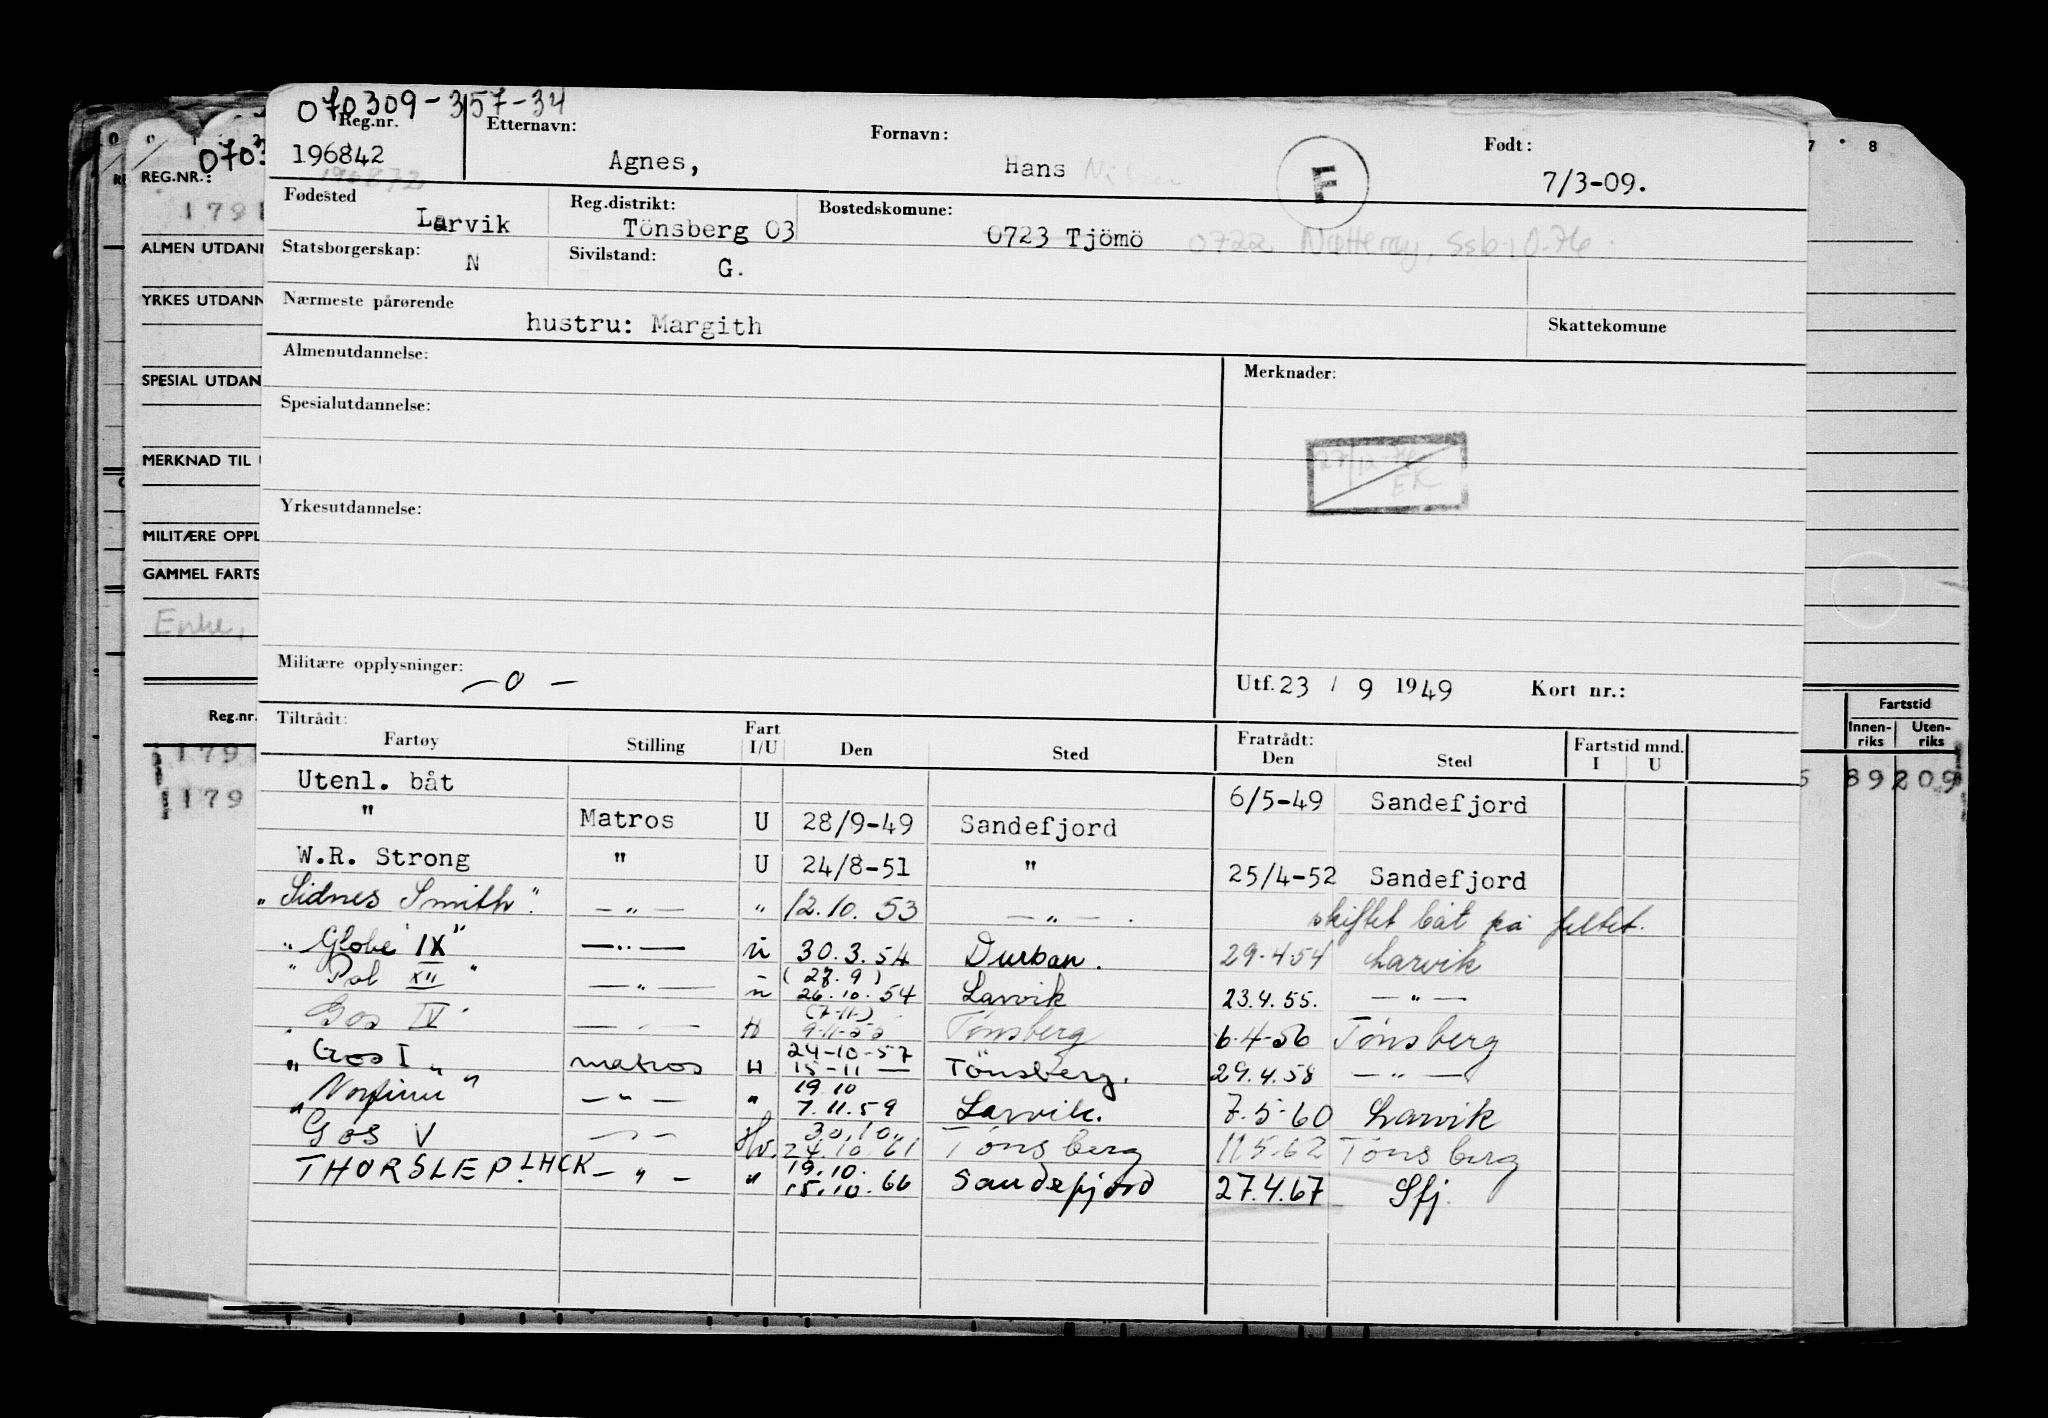 070309-357-34
Reg.nr. Etternavn: Fornavn: Født:
196842 Agnes, Hans F 7/3-09.
Fødested Reg.distrikt: Bostedskomune:
Larvik Tönsberg 03 0723 Tjömö 0722 Nøtterøy, Ssb-10-76.
Statsborgerskap: N Sivilstand: G.
Nærmeste pårørende
hustru: Margith Skattekomune
Almenutdannelse: Merknader:
Spesialutdannelse:
EK
Yrkesutdannelse:
Militære opplysninger: -0- Utf. 23 / 9 1949 Kort nr.:
Tiltrådt: Fart Fratrådt: Fartstid mnd.
Fartøy Stilling I/U Den Sted Den Sted I U
Utenl. båt 6/5-49 Sandefjord
" Matros U 28/9-49 Sandefjord
W.R. Strong " U 24/8-51 " 25/4-52 Sandefjord
"Sidnes Smith". — " — " 12.10.53 — " — . skiftet båt på feltet.
"Globe IX" — " — u 30.3.54 Durban. 29.4.54 Larvik
"Pol XII" — " — u (27.9) 26.10.54 Larvik 23.4.55. — " —
Gos IV — " — H (7-11-) Tønsberg 6-4-56 Tønsberg
"Gos I" matros H 24-10-57 15-11 — Tönsberg. 29.4.58 — " —
"Norfinn" — " — " 19.10 7.11.59 Larvik. 7.5-60 Larvik
Gos V — " — Hv. 30.10. 24.10.61 Tønsberg 11.5-62 Tønsberg
THORSLEP. LHCK — " — " 19.10. 15.10.66 Sandefjord 27.4.67 Sfj.
REG.NR.:
ALMEN UTDANN
YRKES UTDANN
SPESIAL UTDAN
MERKNAD TIL
MILITÆRE OPPL
GAMMEL FARTS
Enke,
Reg.nr.
179
179
7 8
Fartstid
Innenriks Utenriks
89 209